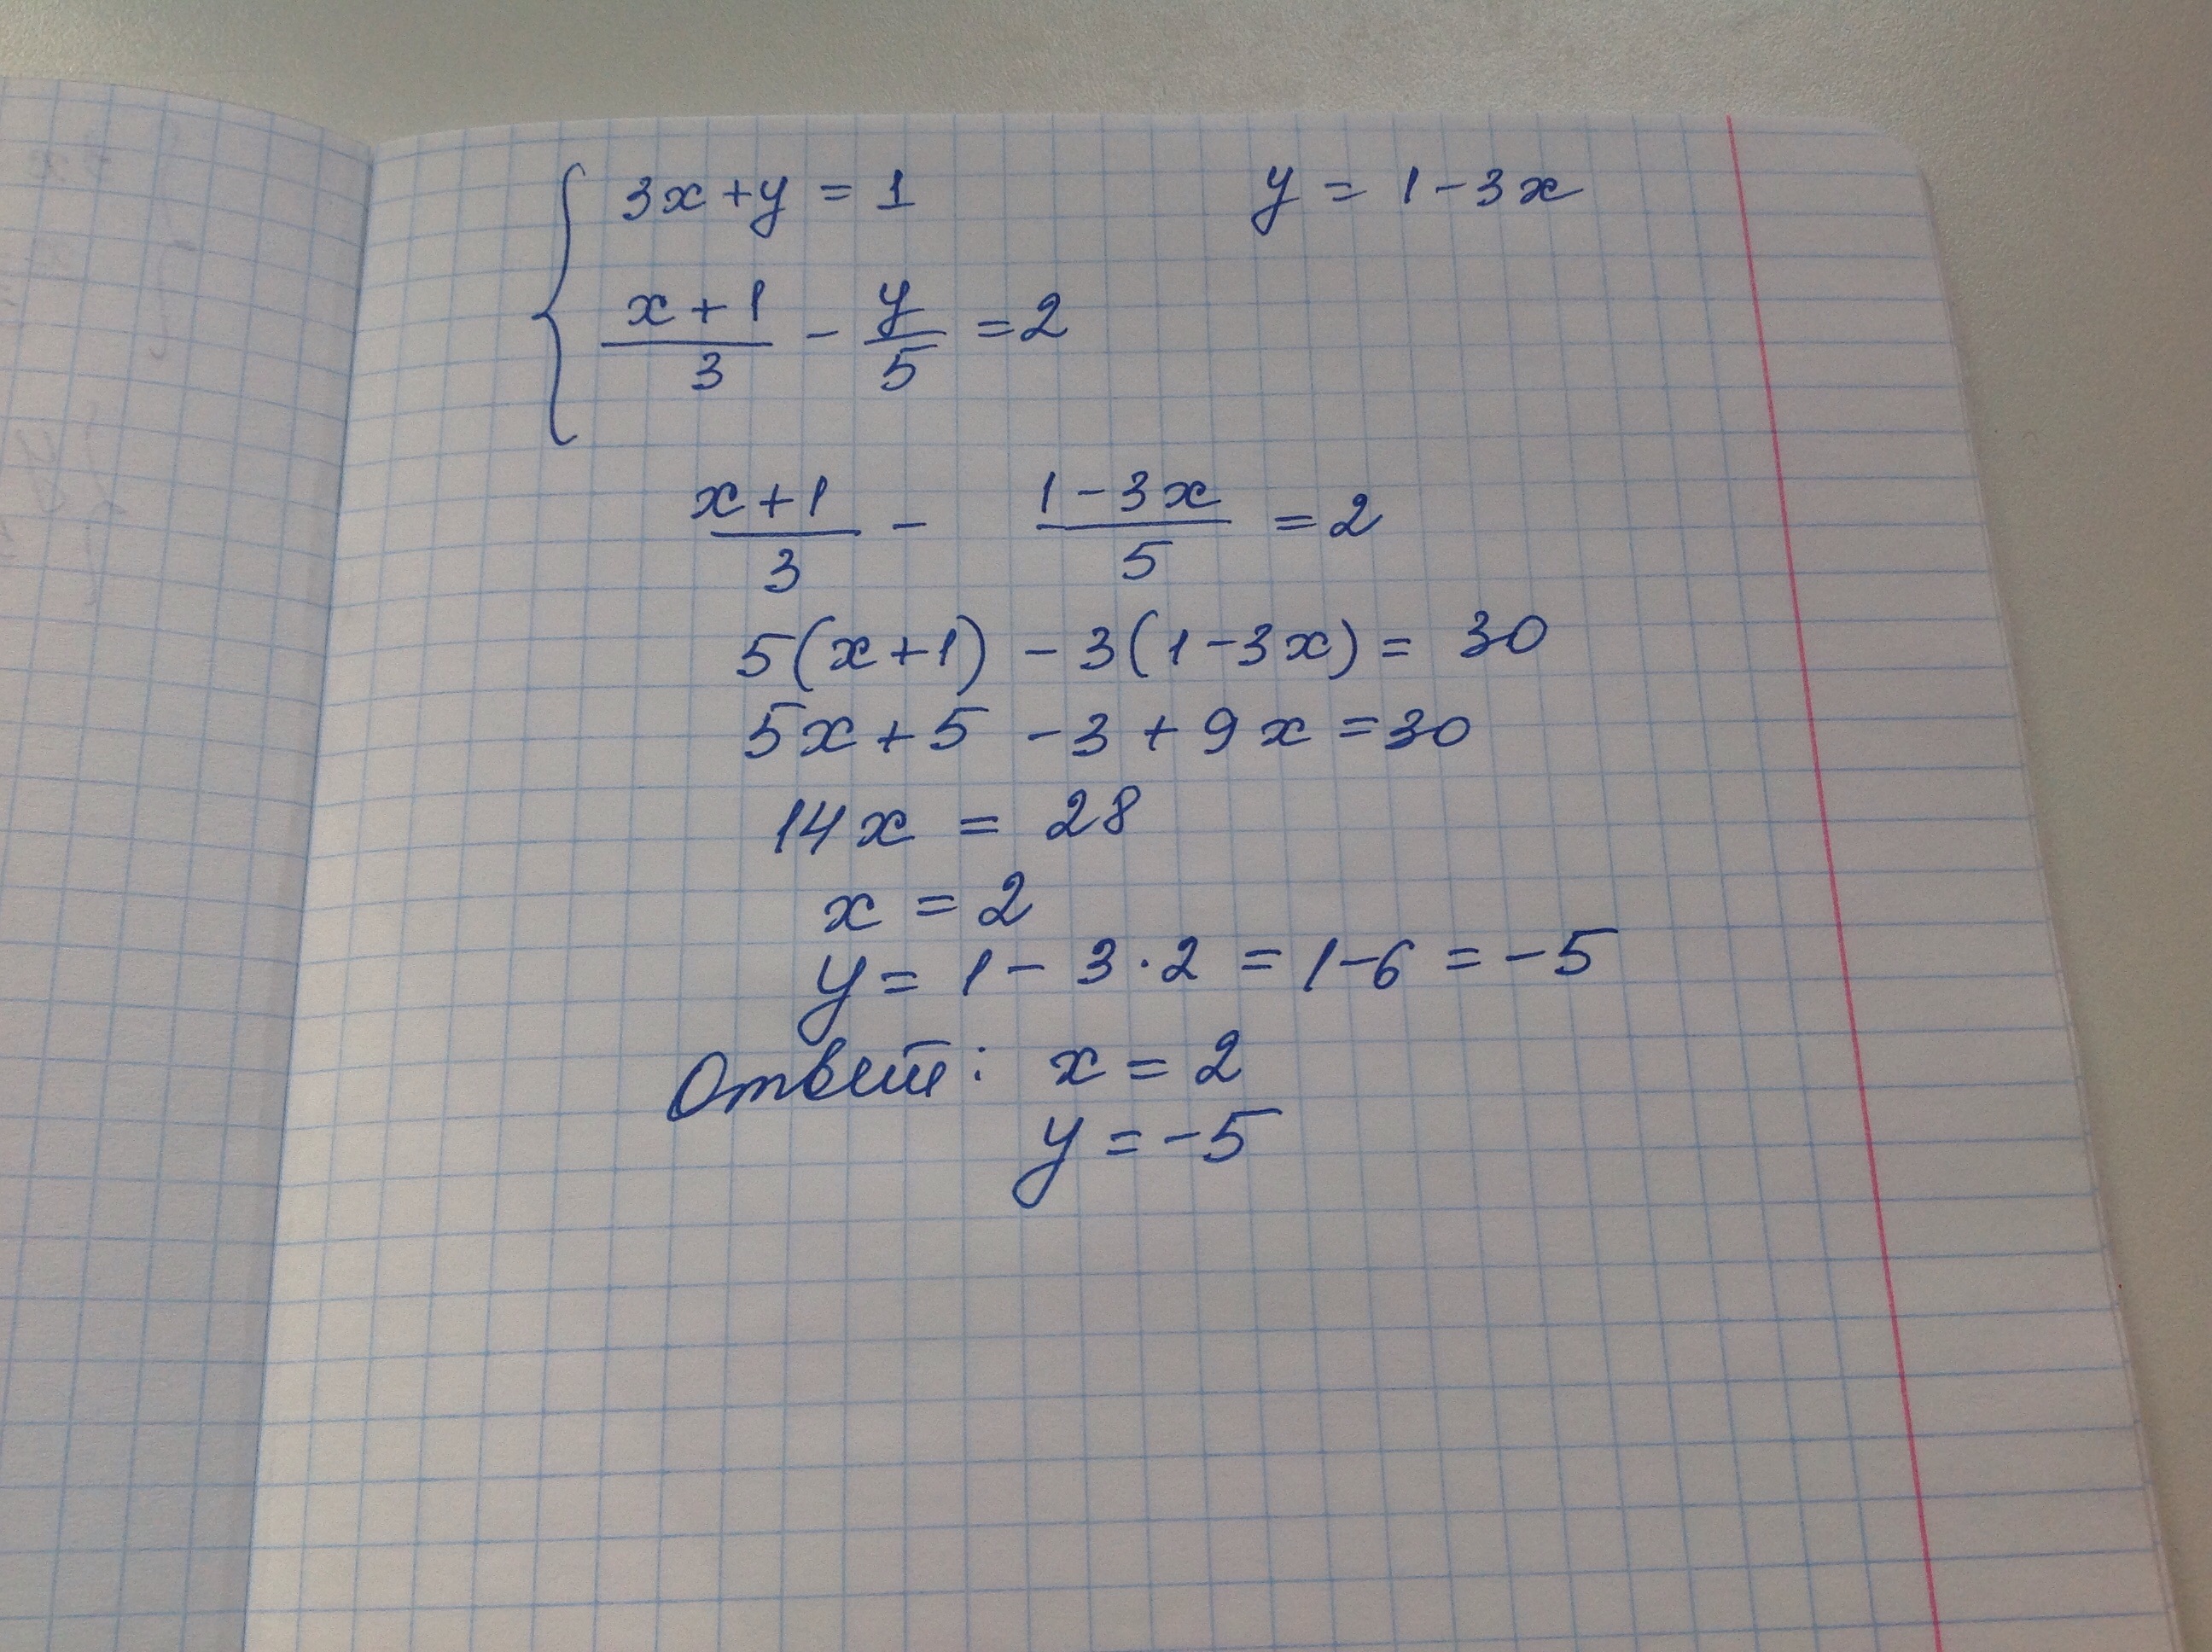 3x+y=1 y=1-3x
(x+1)/3 - y/5 = 2
(x+1)/3 - (1-3x)/5 = 2
5(x+1) - 3(1-3x) = 30
5x+5-3+9x=30
14x = 28
x = 2
y = 1 - 3·2 = 1-6 = -5
Ответ: x = 2
y = -5